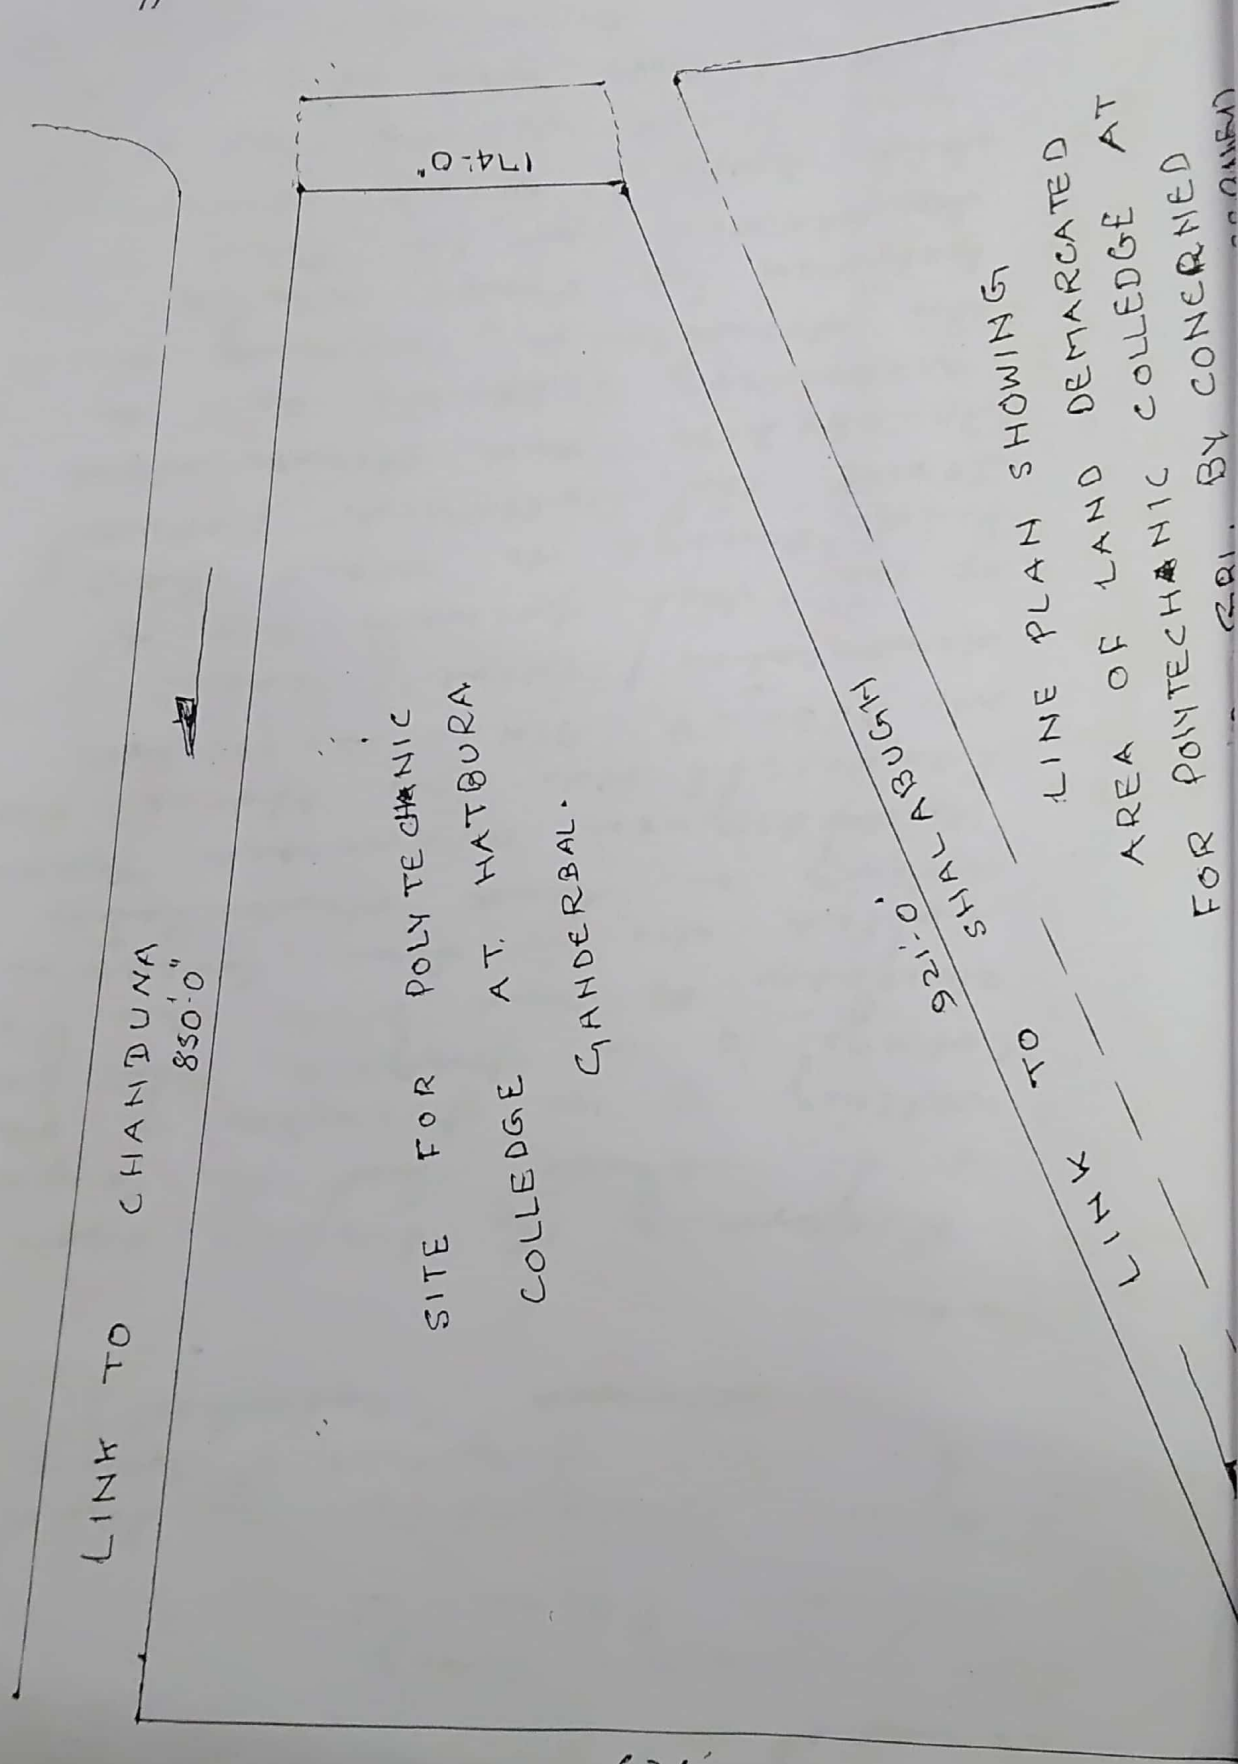 LINK TO CHANDUNA
830'-0"
174'-0"
SITE FOR POLYTECHANIC
COLLEDGE AT, HATBURA
GANDERBAL.
921'-0"
LINK TO SHALABUGH
LINE PLAN SHOWING
AREA OF LAND DEMARCATED
FOR POLYTECHANIC COLLEDGE AT
BY CONERNED